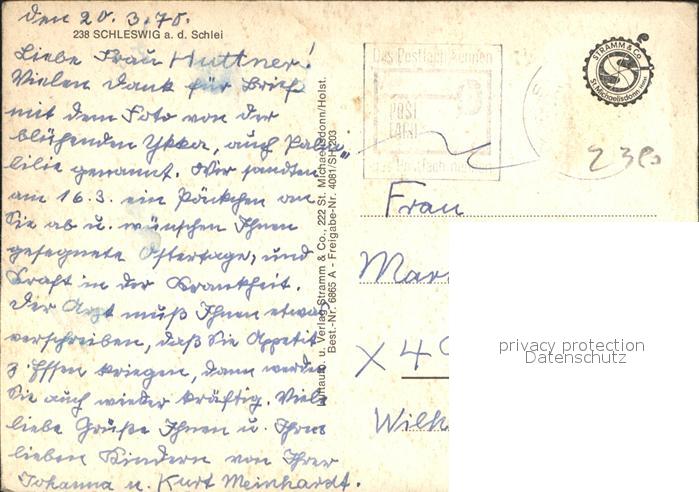 den 20.3.70.
238 SCHLESWIG a. d. Schlei
Liebe Frau Huttner!
Vielen Dank für Brief
mit dem Foto von der
blühenden Ykka, auch Palm„
lilie genannt. Wir sandten
am 16.3. ein Päckchen an
Sie ab u. wünschen Ihnen
gesegnete Ostertage, und
Kraft in der Krankheit.
Der Arzt muß Ihnen etwas
verschreiben, daß Sie Appetit
z Essen kriegen, dann werden
Sie auch wieder kräftig. Viele
liebe Grüße Ihnen u. Ihren
lieben Kindern von Ihrer
Johanna u. Kurt Meinhardt.
Luftaufn. u. Verlag Stramm & Co., 222 St. Michaelisdonn/Holst.
Best.-Nr. 6865 A - Freigabe-Nr. 4081/SH 203
Das Postfach kennen
POST
das Postfach
STRAMM & Co.
St. Michaelisdonn Holst.
Frau
Mar
X 4
Wilh
privacy protection
Datenschutz